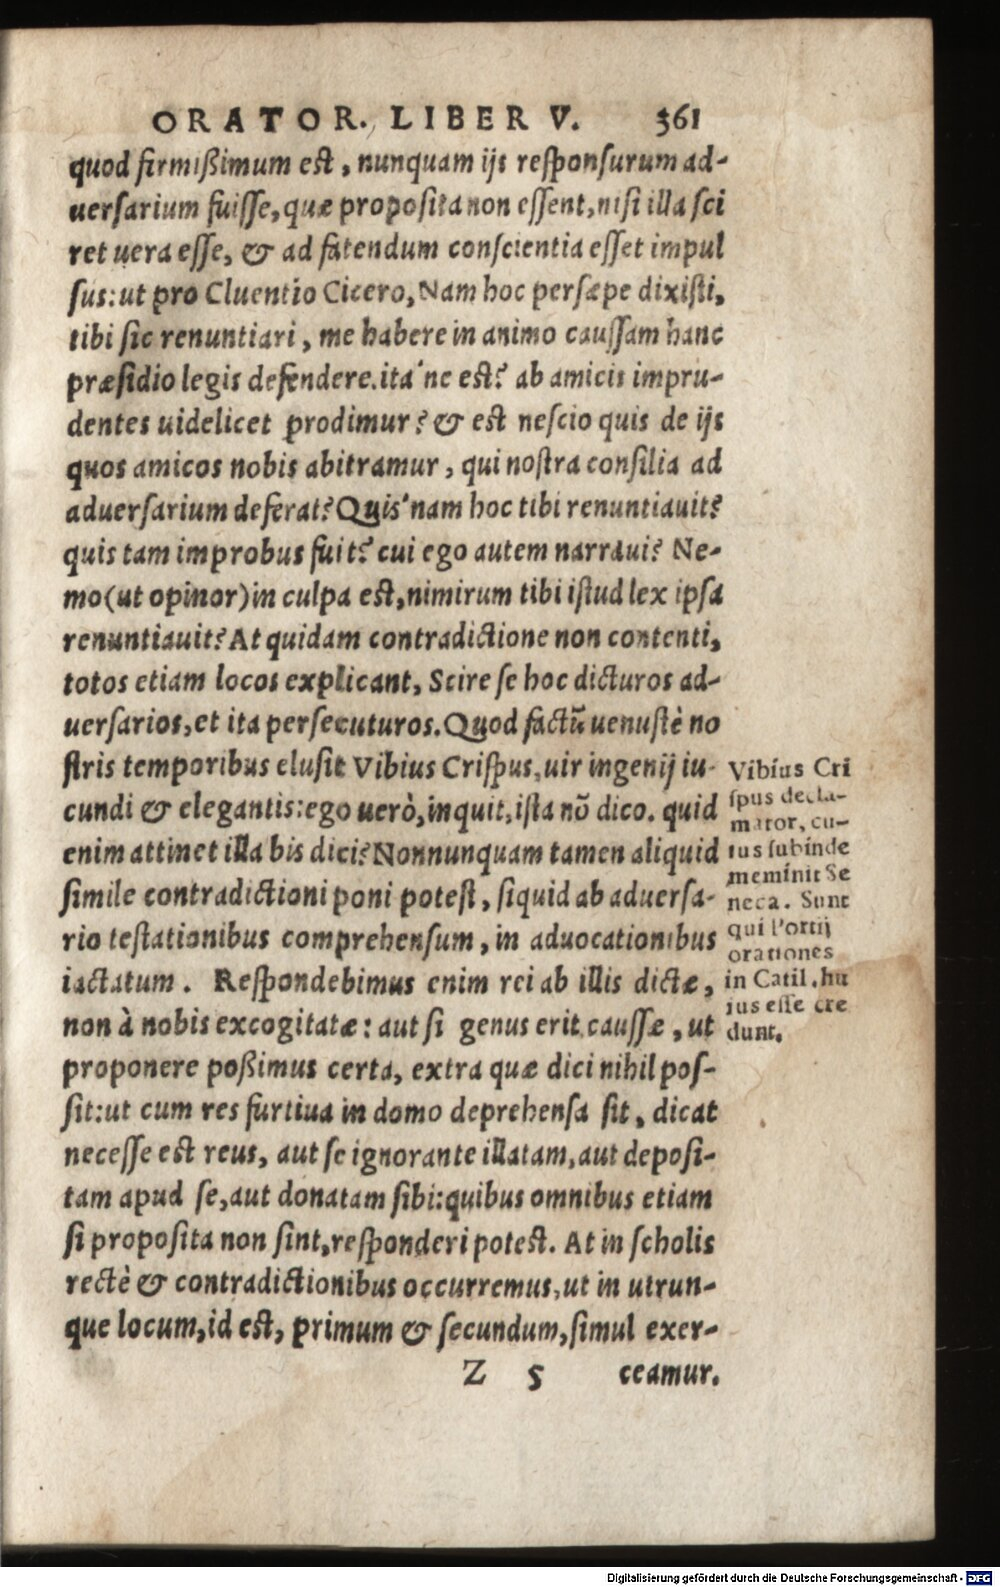 ORATOR. LIBER V. 361
quod firmißimum est, nunquam ijs responsurum ad-
uersarium fuisse, quæ proposita non essent, nisi illa sci
ret uera esse, & ad fatendum conscientia esset impul
sus: ut pro Cluentio Cicero, Nam hoc persæpe dixisti,
tibi sic renuntiari, me habere in animo caussam hanc
præsidio legis defendere. ita´ne est? ab amicis impru-
dentes uidelicet prodimur? & est nescio quis de ijs
quos amicos nobis abitramur, qui nostra consilia ad
aduersarium deferat? Quis´nam hoc tibi renuntiauit?
quis tam improbus fuit? cui ego autem narraui? Ne-
mo (ut opinor) in culpa est, nimirum tibi istud lex ipsa
renuntiauit? At quidam contradictione non contenti,
totos etiam locos explicant, Scire se hoc dicturos ad-
uersarios, et ita persecuturos. Quod factū uenustè no
stris temporibus elusit Vibius Crispus, uir ingenij iu-
cundi & elegantis: ego uerò, inquit, ista nō dico. quid
enim attinet illa bis dici? Nonnunquam tamen aliquid
simile contradictioni poni potest, siquid ab aduersa-
rio testationibus comprehensum, in aduocationibus
iactatum. Respondebimus enim rei ab illis dictæ,
non à nobis excogitatæ: aut si genus erit caussæ, ut
proponere poßimus certa, extra quæ dici nihil pos-
sit: ut cum res furtiua in domo deprehensa sit, dicat
necesse est reus, aut se ignorante illatam, aut deposi-
tam apud se, aut donatam sibi: quibus omnibus etiam
si proposita non sint, responderi potest. At in scholis
rectè & contradictionibus occurremus, ut in utrun-
que locum, id est, primum & secundum, simul exer-
Z 5 ceamur.
Vibius Cri
spus decla-
mator, cu-
ius subinde
meminit Se
neca. Sunt
qui Portij
orationes
in Catil. hu
ius esse cre
dunt.
Digitalisierung gefördert durch die Deutsche Forschungsgemeinschaft - DFG